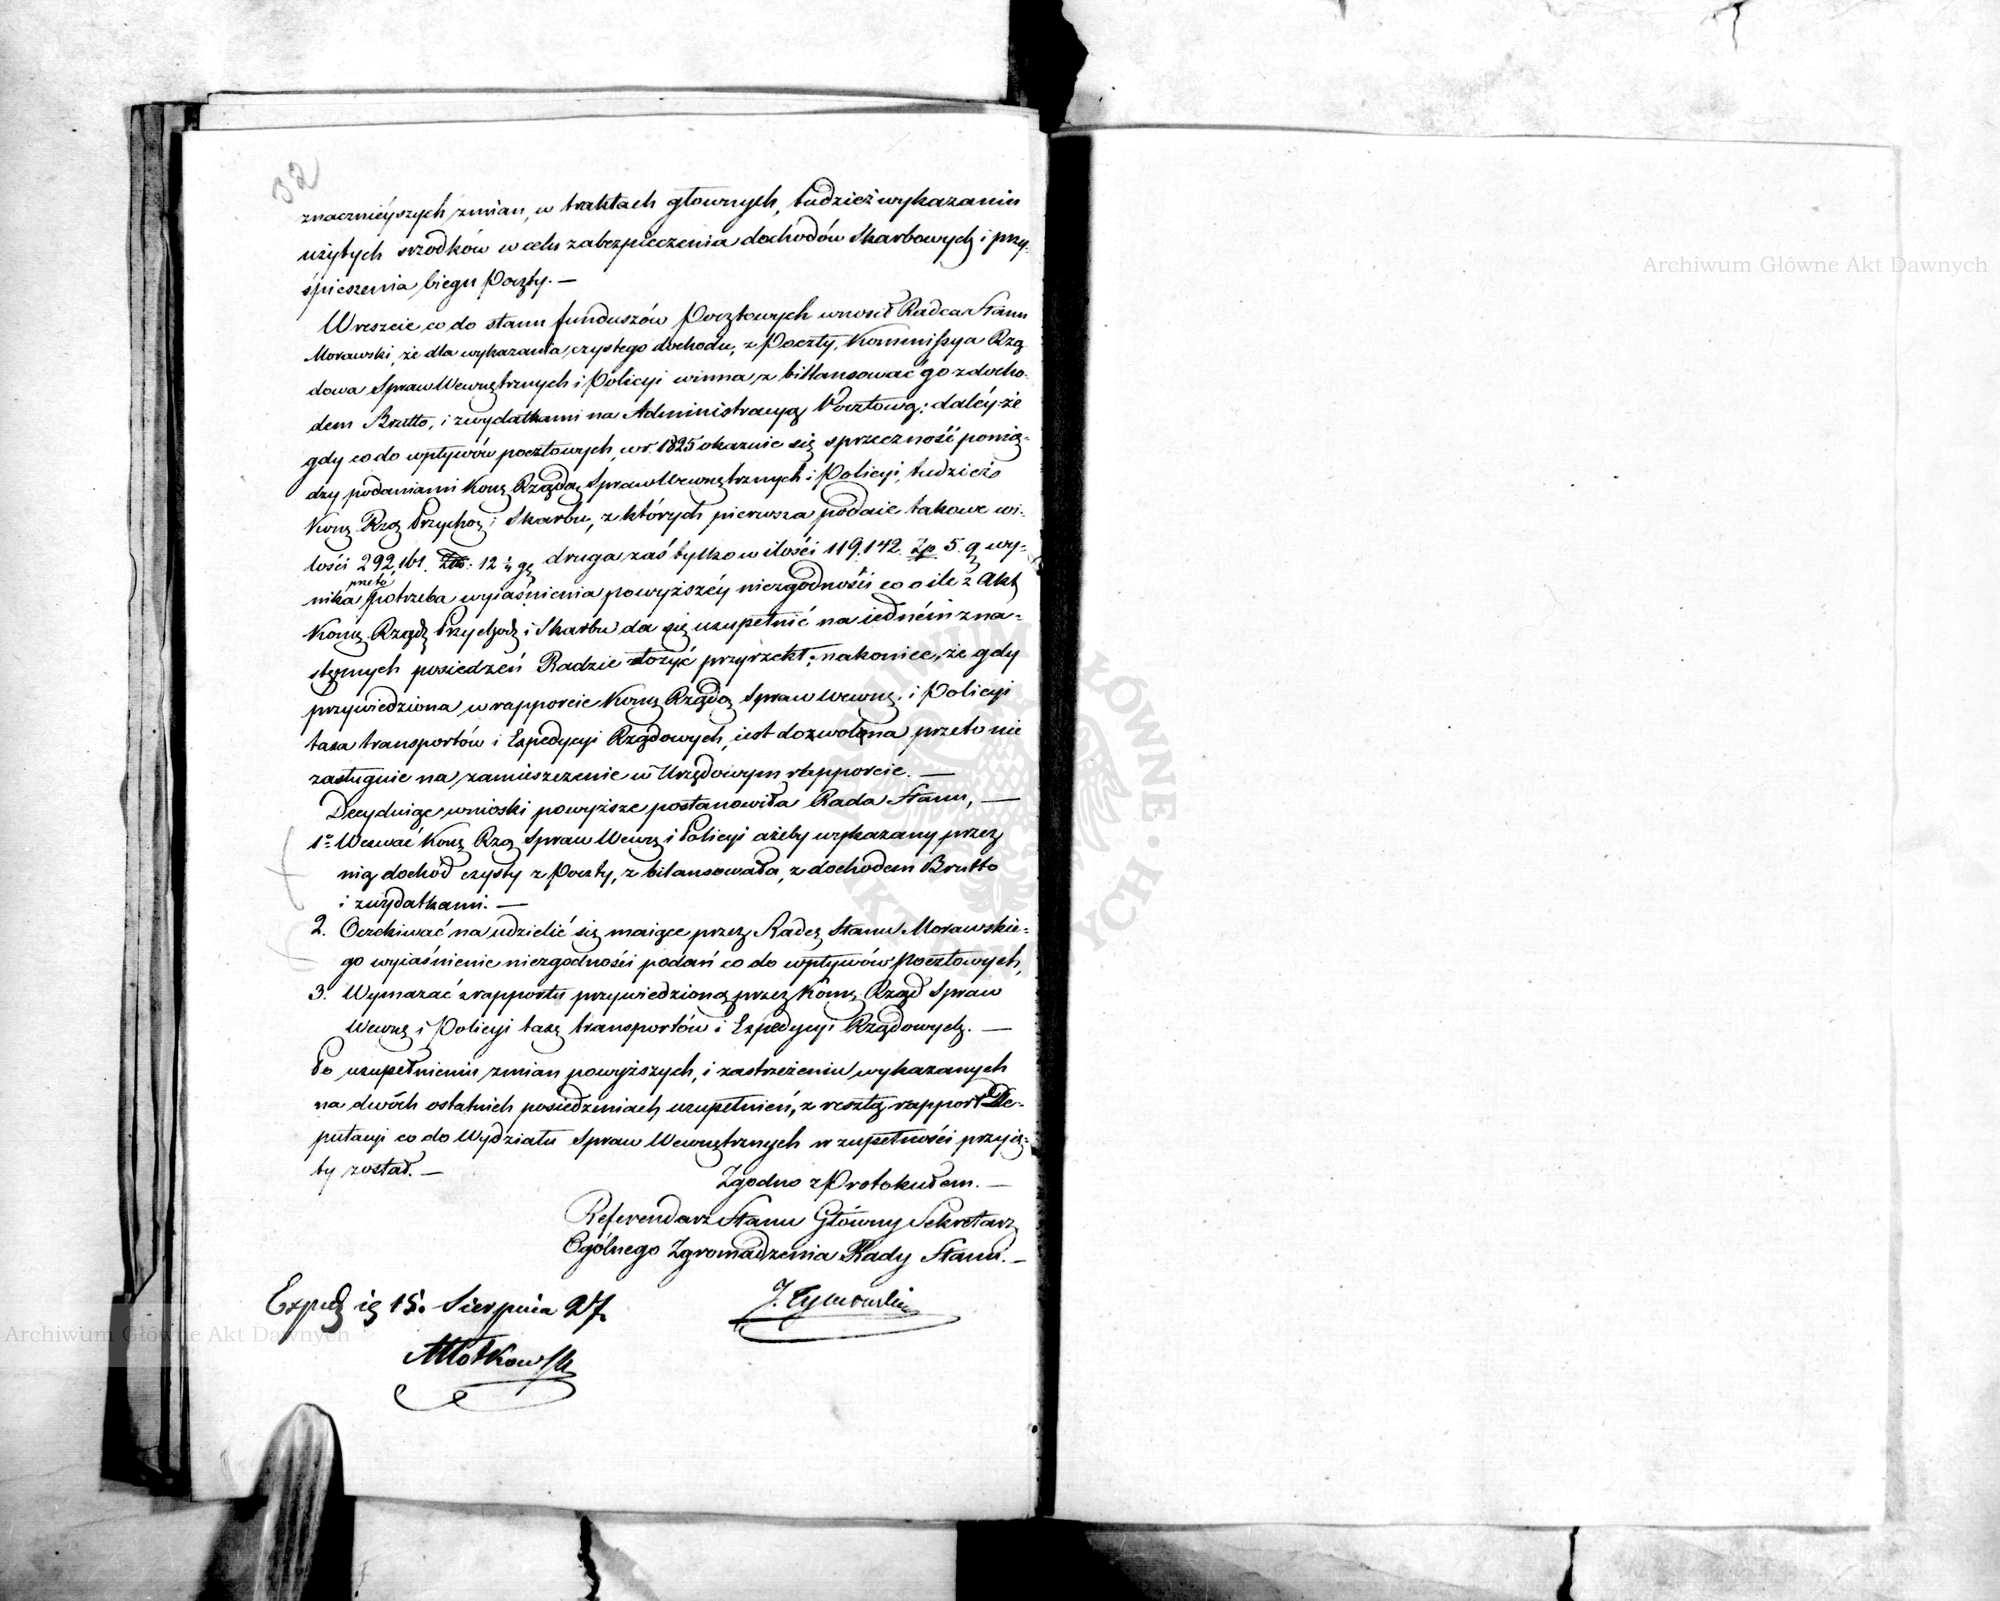 32
znacznieyszych zmian, w traktach głownych, tudzież wykazaniu
użytych srzodków w celu zabezpieczenia dochodów Skarbowych i przy-
śpieszenia biegu Poczty. —
Wreszcie co do stanu funduszów Pocztowych wnosił Radca Stanu
Morawski, że dla wykazania czystego dochodu, z Poczty, Kommissya Rzą
dowa Spraw Wewnętrznych i Policyi winna z billansować go z docho-
dem Brutto, i z wydatkami na Administracyą Pocztową; daléy że
gdy co do wpływów pocztowych, w r. 1825 okazuie się sprzeczność pomię-
dzy podaniami Kom Rządo Spraw Wewnętrznych i Policyi, tudzież
Kom Rzą Przycho i Skarbu, z których pierwsza podaie takowe w i-
lości 292,161. Złp. 12 ½ gr druga zaś tylko w ilości 119,142. Zp 5. g wy-
nika przeto potrzeba wyiaśnienia powyższéy niezgodności co o ile z Akt
Kom Rządz Przychod i Skarbu da się uzupełnić na iedném z na-
stępnych posiedzeń Radzie złożyć przyrzekł; nakoniec, że gdy
przywiedziona w rapporcie Kom Rządo Spraw Wewnę. i Policyi
taxa transportów i Expedycyi Rządowych, iest dozwolona przeto nie
zasługuie na zamieszczenie w Urzędowym rapporcie. —
Decyduiąc wnioski powyższe postanowiła Rada Stanu, —
1º Wezwać Kom Rzą Spraw Wewnę i Policyi ażeby wykazany przez
nią dochod czysty z Poczty, z bilansowała, z dochodem Brutto
i z wydatkami. —
2. Oczekiwać na udzielić się maiące przez Radcę Stanu Morawskie-
go wyiaśnienie niezgodności podań co do wpływów Pocztowych,
3. Wymazać z rapportu przywiedzioną przez Kom Rząd Spraw
Wewnę i Policyi taxę transportów i Expedycyi Rządowych. —
Po uzupełnieniu zmian powyższych, i zastrzeżeniu wykazanych
na dwóch ostatnich posiedzeniach uzupełnień, z resztą rapport De-
putacyi co do Wydziału Spraw Wewnętrznych w zupełności przyię-
ty został. —
Zgodno z Protokułem. —
Referendarz Stanu Główny Sekretarz
Ogólnego Zgromadzenia Rady Stanu. —
J. Tymowski
Exped ię 15. Sierpnia 27.
Młotkowski
Archiwum Główne Akt Dawnych
Archiwum Główne Akt Dawnych